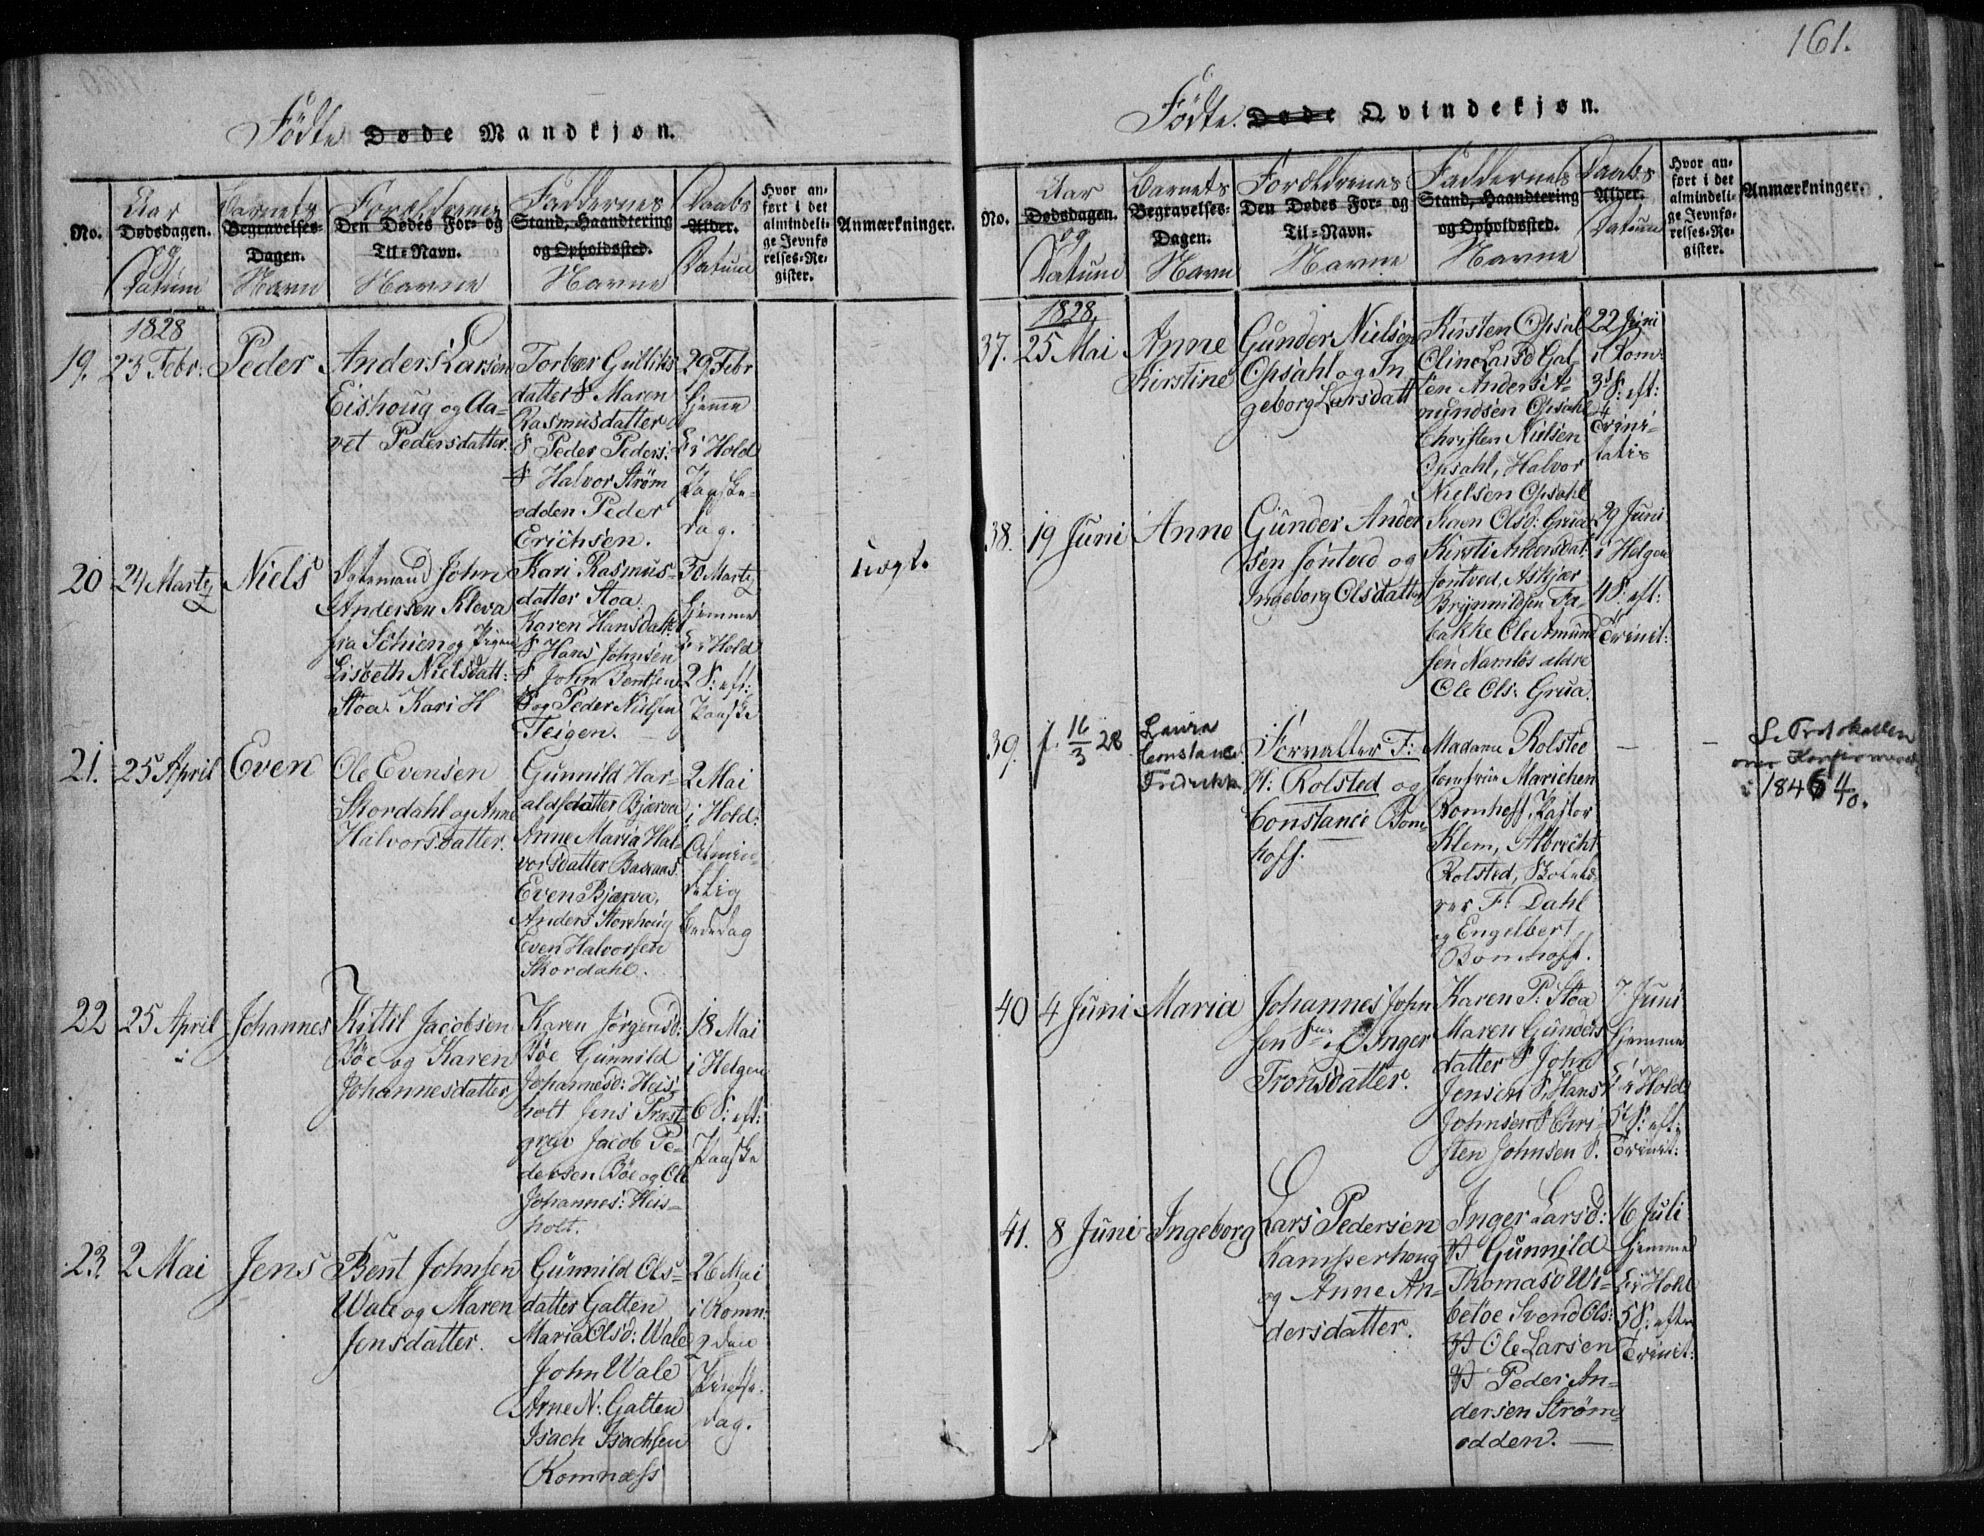 161.
Födte Døde Mandkjøn.
No.
Aar
Dødsdagen.
og
Datum
Barnets
Begravelses-
Dagen.
Navn
Forældrenes
Den Dødes For- og
Til-Navn.
Navne
Faddernes
Stand, Haandtering
og Opholdssted.
Navne
Daabs
Alder.
Datum
Hvor an-
ført i det
almindeli-
ge Jevnfø
relses-Re-
gister.
Anmærkninger.
1828
19.
23 Febr:
Peder
Anders Larsen
Eishoug og Aa-
vet Pedersdatter.
Torbær Gulliks
datter S Maren
Rasmusdatter
S Peder Peders:
S Halvor Strøm
odden Peder
Erichsen.
29 Febr
hjeme
Er i Hold
Paaske-
dag.
20
24 Martz
Niels
John
Andersen Kleva
fra Schien og Pigen
Lisbeth Nielsdatt:
Stoa. Kari H
Kari Rasmus-
datter Stoa.
Karen Hansdatt:
S Hans Johnsen
S John Bentsen
S og Peder Nielsen
Teigen.
30 Martz
hjemme
Er i Hold
2 S: eft:
Paaske
uægt.
21.
25 April
Even
Ole Evensen
Skordahl og Anne
Halvorsdatter.
Gunnild Har-
aldsdatter Bjærva
Anne Maria Hal-
vorsdatter Baraas
Even Bjærva,
Anders Storhoug
Even Halvorsen
Skordahl.
2 Mai
i Hold:
Almin-
delig
Bededag
22
25 April
Johannes
Kittil Jacobsen
Böe og Karen
Johannesdatter
Karen Jörgensd:
Böe Gunnild
Johannesd: Heis-
holt Jens Trast
grav Jacob Pe-
dersen Böe og Ole
Johannes: Heis-
holt.
18 Mai
i Helgen
6 S: eft:
Paaske
23.
2 Mai
Jens
Bent Johnsen
Wale og Maren
Jensdatter.
Gunnild Ols-
datter Galten
Maria Olsd: Wale
John Wale
Arne N: Galten
Isach Isachsen
Komnæss
26 Mai
i Komn:
2den
Pintse-
dag.
Födte. Døde Qvindekjøn.
No.
Aar
Dødsdagen.
og
Datum
Barnets
Begravelses-
Dagen.
Navn
Forældrenes
Den Dødes For- og
Til-Navn.
Navne
Faddernes
Stand, Haandtering
og Opholdssted.
Navne
Daabs
Alder.
Datum
Hvor an-
ført i det
almindeli-
ge Jevnfø-
relses-Re-
gister.
Anmærkninger.
1828.
37.
25 Mai
Anne
Kirstine
Gunder Nielsen
Opsahl og In
geborg Larsdatt
Kirsten Opsal
Oline Larsd Gal-
ten Anders A-
mundsen Opsahl
Christen Nielsen
Opsahl, Halvor
Nielsen Opsahl
22 Juni
i Kom:
3 S: eft:
Trini-
tatis
38.
19 Juni
Anne
Gunder Ander
sen Jöntved og
Ingeborg Olsdatter
Karen Olsd: Grua
Kirsti Andersdat:
Jöntved, Askjær
Brynnildsen Fa-
bakke Ole Amund
sen Namlös ældre
Ole Ols: Grua
29 Juni
i Helgen
4 S: eft:
Trinit:
39.
f. 16/3 28
Laura
Constance
Fredrikke
Forvalter F:
H: Rolsted og
Constance Bom-
hoff.
Madame Rolsted
Jomfrue Marichen
Bomhoff, Pastor
Klem, Albrecht
Rolsted,
F: Dahl
og Engelbert
Bomhoff.
Se Protokollen
over Konfirmerede
i 1846 4/0.
40
4 Juni
Maria
Johannes John
sen og Inger
Tronsdatter.
Karen P: Stoa
Maren Gunders
datter S John
Jensen S, Hans
Johnsen S Chri-
sten Johnsen S.
7 Juni
hjemme
Er i Hold
5 S: eft:
Trinit:
41.
8 Juni
Ingeborg
Lars Pedersen
Kamperhoug
og Anne An-
dersdatter.
Inger Larsd:
Gunnild
Thomasd Wi-
betoe Svend Ols:
Ole Larsen
Peder An-
dersen Ström-
odden.
16 Juli
hjemme
Er i Hold
5 S: efter
Trinit: